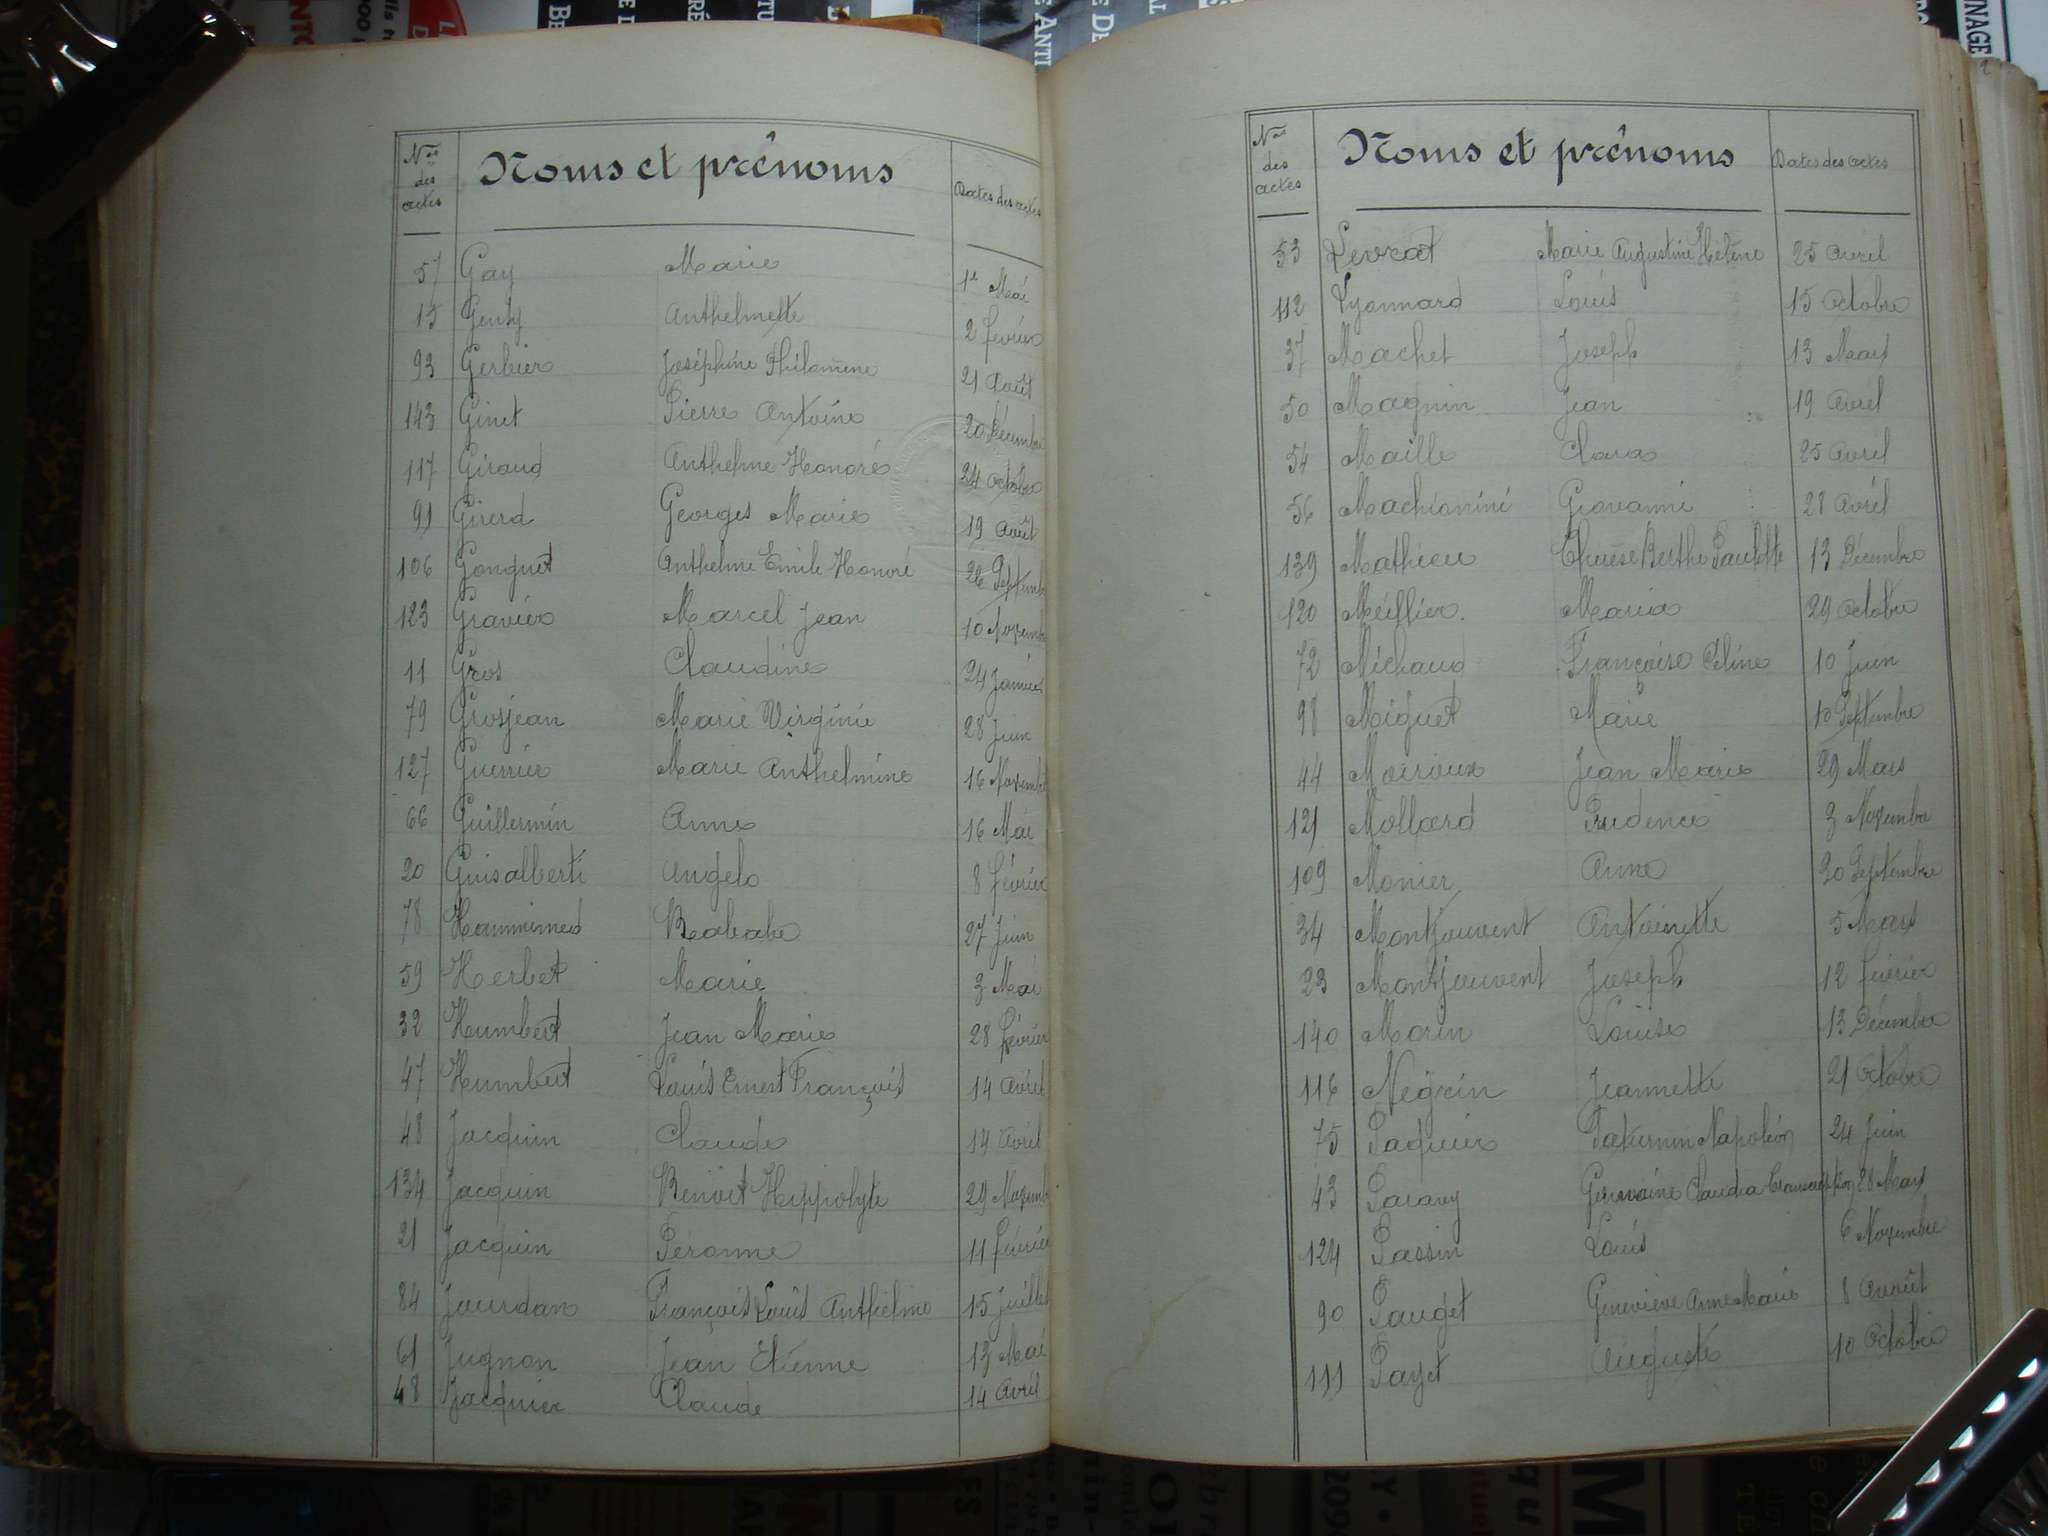 Nos des actes Noms et prénoms Dates des actes
57 Gay Marie 1er Mai
15 Genty Anthelmette 2 Février
93 Gerbier Joséphine Philomène 21 Août
143 Ginet Pierre Antoine 20 Décembre
117 Giraud Anthelme Honoré 24 Octobre
91 Girerd Georges Marie 19 Août
106 Gonguet Anthelme Emile Honoré 26 Septembre
123 Gravier Marcel Jean 10 Novembre
11 Gros Claudine 24 Janvier
79 Grosjean Marie Virginie 28 Juin
127 Guerrier Marie Anthelmine 16 Novembre
66 Guillermin Anne 16 Mai
20 Guisalberti Angelo 8 Février
78 Hammimed Rabah 27 Juin
59 Herbet Marie 3 Mai
32 Humbert Jean Marie 28 Février
47 Humbert Louis Ernest François 14 Avril
48 Jacquin Claude 14 Avril
134 Jacquin Benoît Hippolyte 29 Novembre
21 Jacquin Péronne 11 Février
84 Jourdan François Louis Anthelme 15 Juillet
61 Jugnon Jean Etienne 13 Mai
48 Jacquier Claude 14 Avril
Nos des actes Noms et prénoms Dates des actes
53 Levrat Marie Augustine Hélène 25 Avril
112 Lyonnard Louis 15 Octobre
37 Machet Joseph 13 Mars
50 Magnin Jean 19 Avril
54 Maille Clara 25 Avril
56 Machionini Giovanni 28 Avril
139 Mathieu Thérèse Berthe Paulette 13 Décembre
120 Meillier Maria 29 Octobre
72 Michaud Françoise Céline 10 Juin
98 Miguet Marie 10 Septembre
44 Moirioux Jean Marie 29 Mars
121 Mollard Prudence 3 Novembre
109 Monier Anne 30 Septembre
34 Montjouvent Antoinette 5 Mars
23 Montjouvent Joseph 12 Février
140 Morin Louise 13 Décembre
116 Négrin Jeannette 21 Octobre
75 Paquier Saturnin Napoléon 24 Juin
43 Paravy Germaine Claudia 28 Mars
124 Passin Louis 6 Novembre
90 Pauget Geneviève Anne Marie 8 Août
111 Payet Auguste 10 Octobre